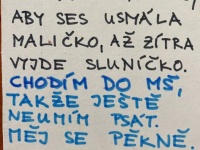 ABY SES USMÁLA
MALIČKO, AŽ ZÍTRA
VYJDE SLUNÍČKO.
CHODÍM DO MŠ,
TAKŽE JEŠTĚ
NEUMÍM PSÁT.
MĚJ SE PĚKNĚ.